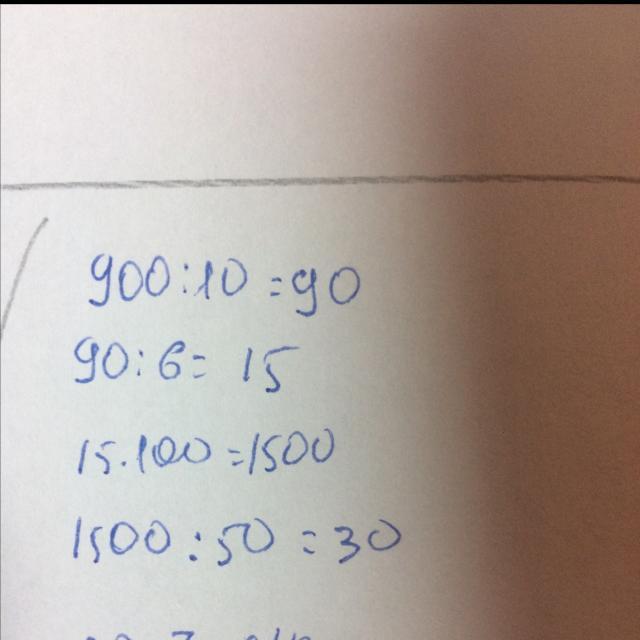 900:10=90
90:6= 15
15.100=1500
1500:50=30